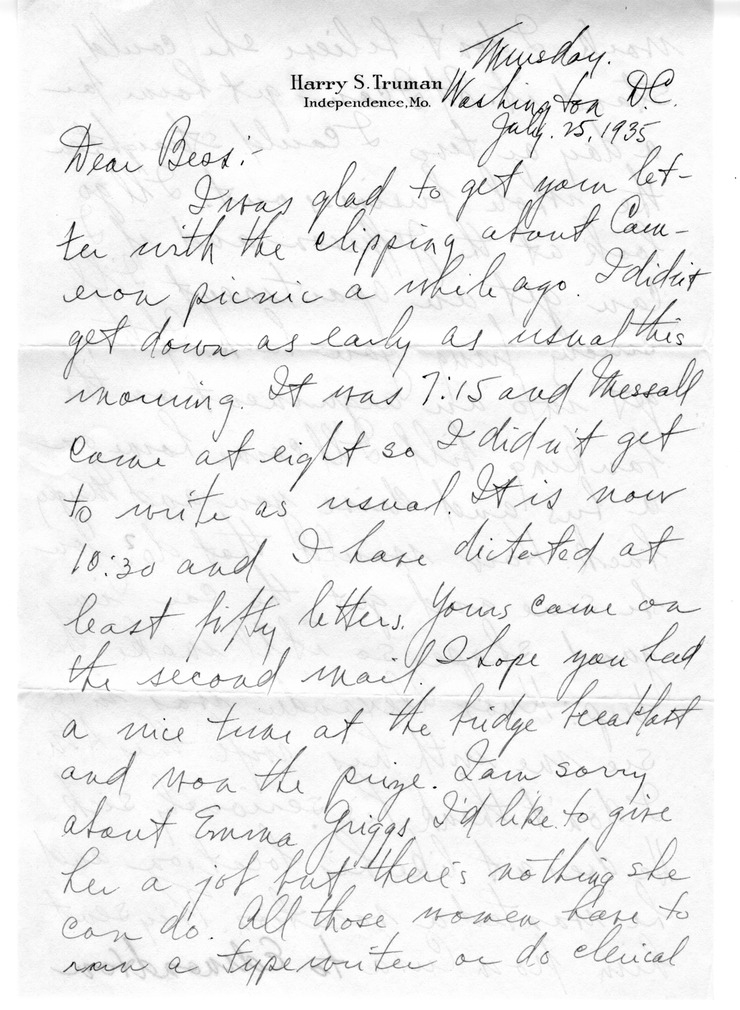 Thursday.
Harry S. Truman
Independence, Mo.
Washington D.C.
July. 25, 1935
Dear Bess:-
I was glad to get your let-
ter with the clipping about Cam-
eron picnic a while ago. I didn't
get down as early as usual this
morning. It was 7:15 and Messall
came at eight so I didn't get
to write as usual. It is now
10:30 and I have dictated at
least fifty letters. Yours came on
the second mail. I hope you had
a nice time at the bridge breakfast
and won the prize. I am sorry
about Emma Griggs. I'd like to give
her a job but there's nothing she
can do. All those women have to
run a typewriter or do clerical